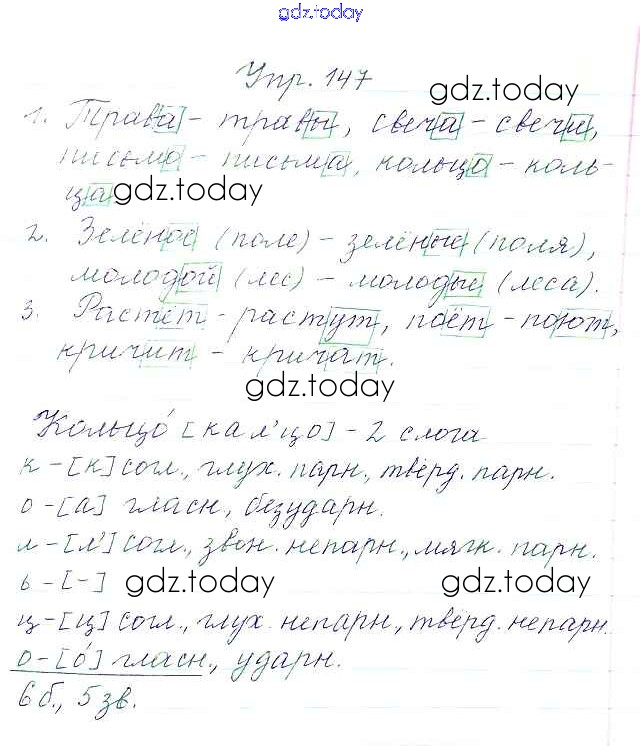 gdz.today
Упр. 147
gdz.today
1. Трава - травы, свеча - свечи,
письмо - письма, кольцо - коль-
ца
gdz.today
2. Зелёное (поле) - зелёные (поля),
молодой (лес) - молодые (леса).
3. Растёт - растут, поёт - поют,
кричит - кричат.
gdz.today
Кольцо́ [кал'цо] - 2 слога
к - [к] согл., глух. парн., твёрд. парн.
о - [а] гласн., безударн.
л - [л'] согл., звон. непарн., мягк. парн.
ь - [-]
gdz.today gdz.today
ц - [ц] согл., глух. непарн., твёрд. непарн.
о - [о́] гласн., ударн.
6 б., 5 зв.